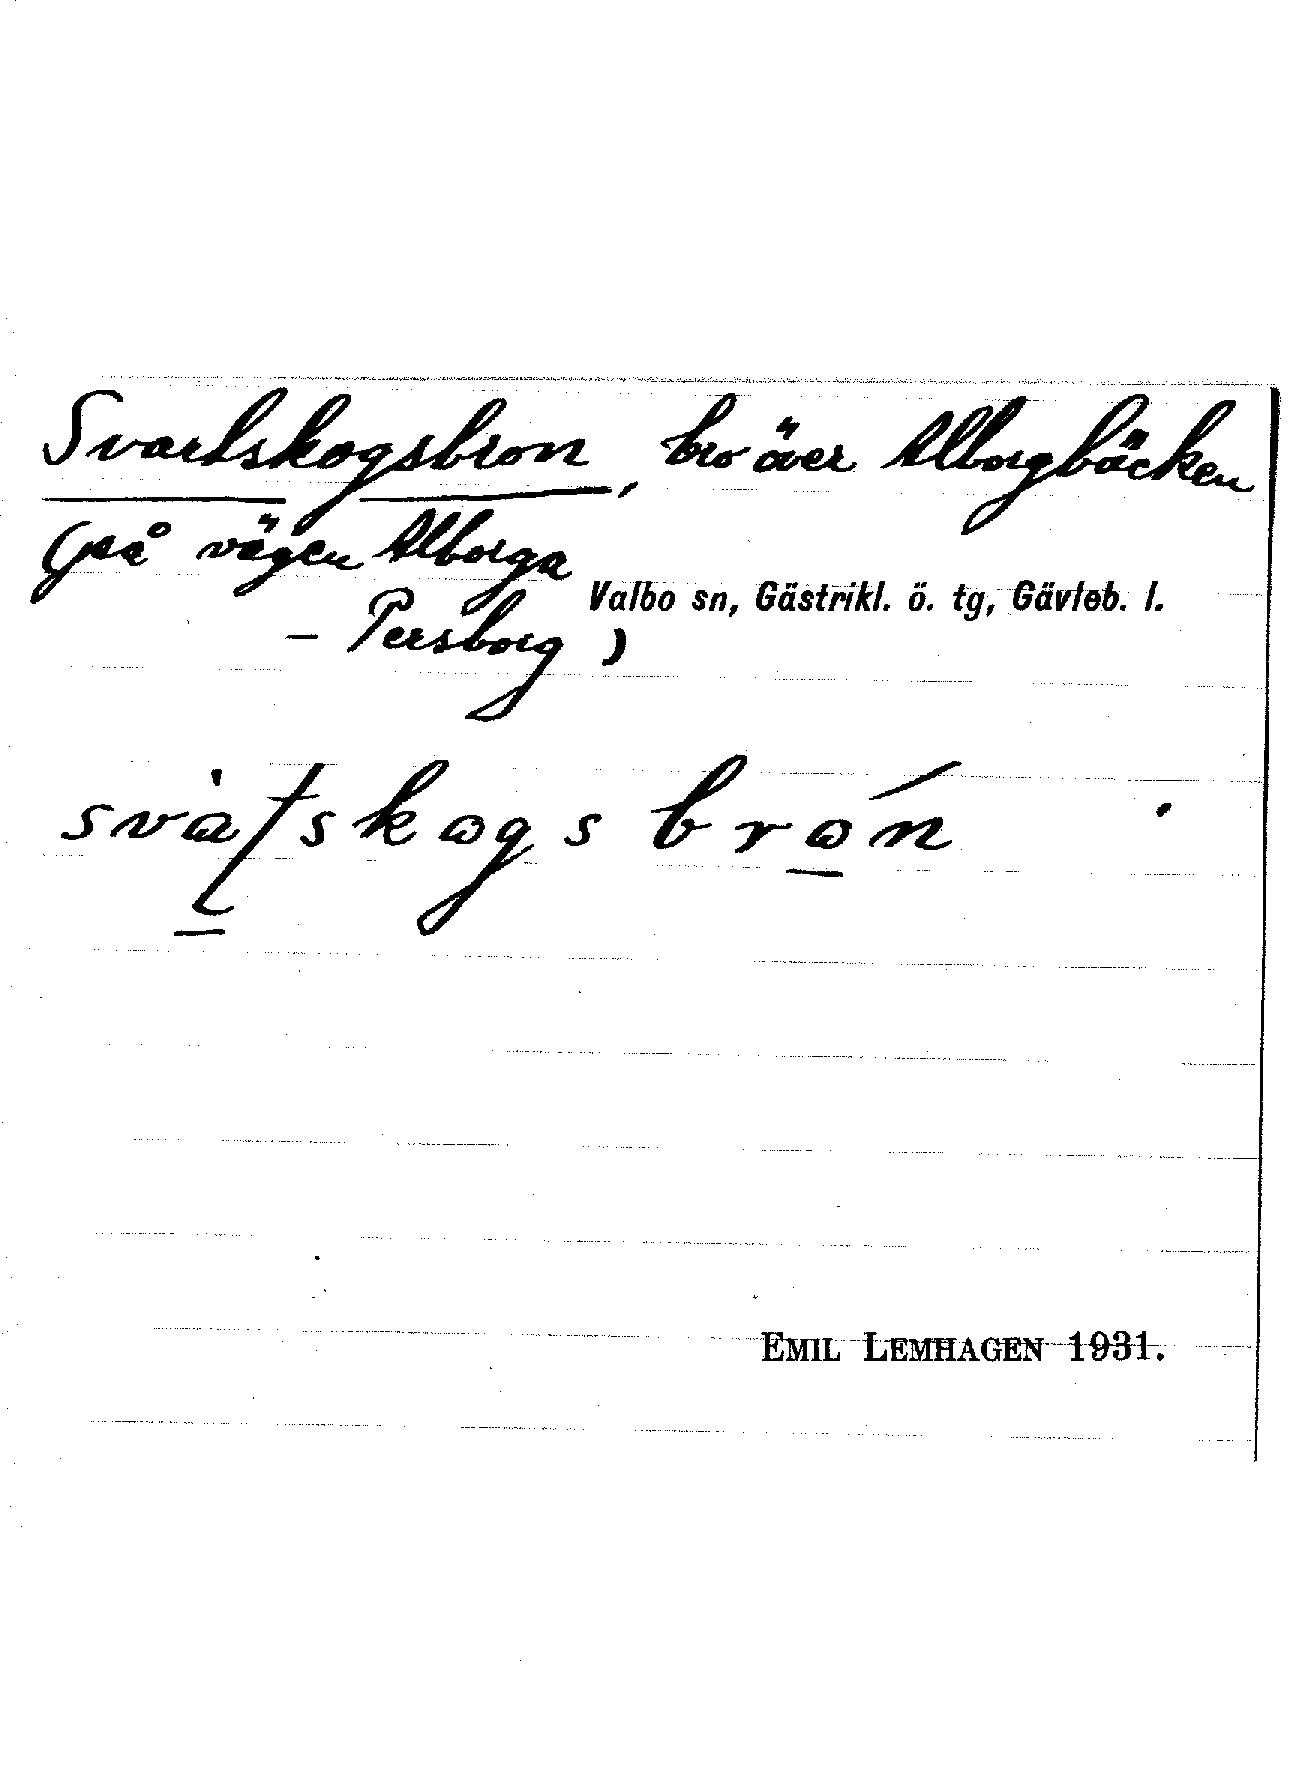 Svartskogsbron, bro över Alborgbäcken
(på vägen Alborga
Valbo sn, Gästrikl. ö. tg, Gävleb. l.
– Persborg)
svàʈskogsbrón
EMIL LEMHAGEN 1931.